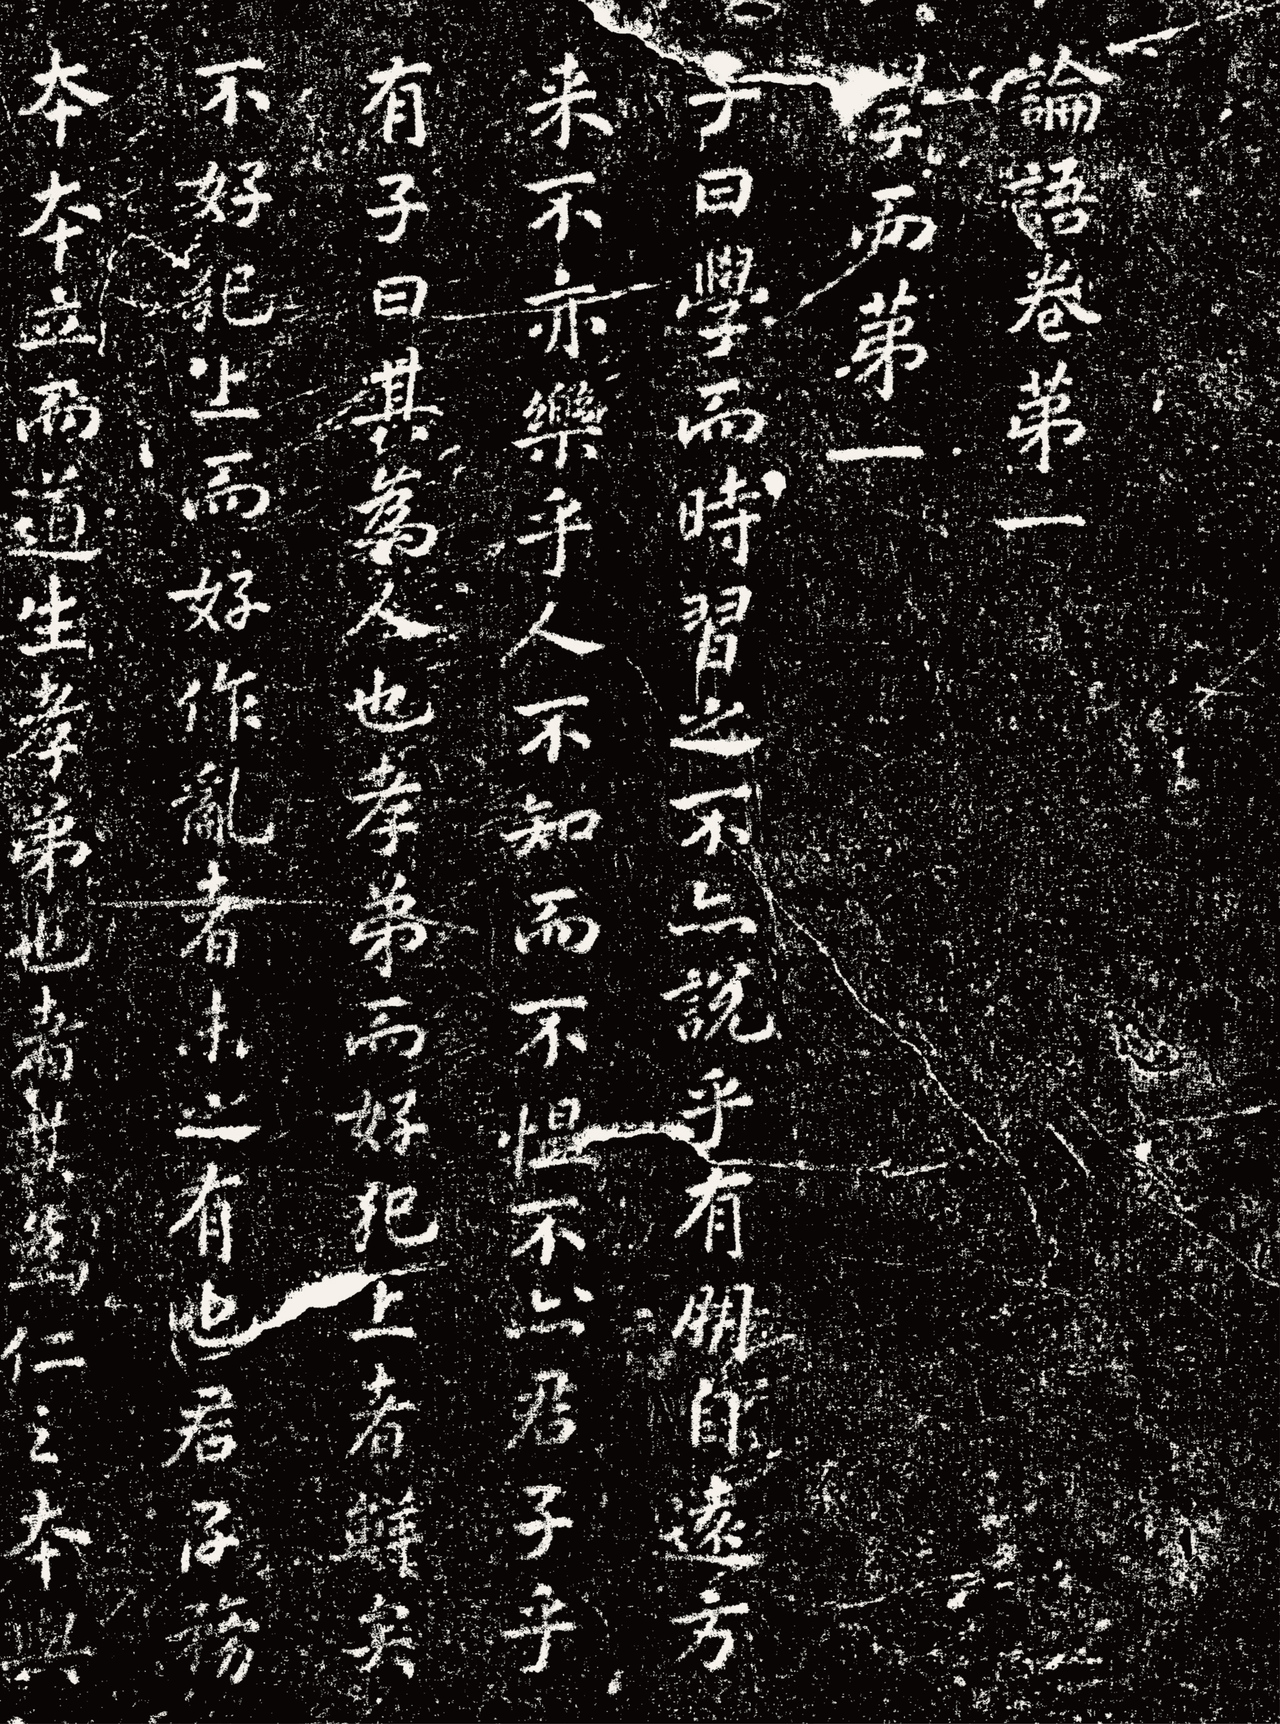 論語卷第一
學而第一
子曰學而時習之不亦說乎有朋自遠方
来不亦樂乎人不知而不慍不亦君子乎
有子曰其為人也孝弟而好犯上者鮮矣
不好犯上而好作亂者未之有也君子務
本本立而道生孝弟也者其為仁之本與